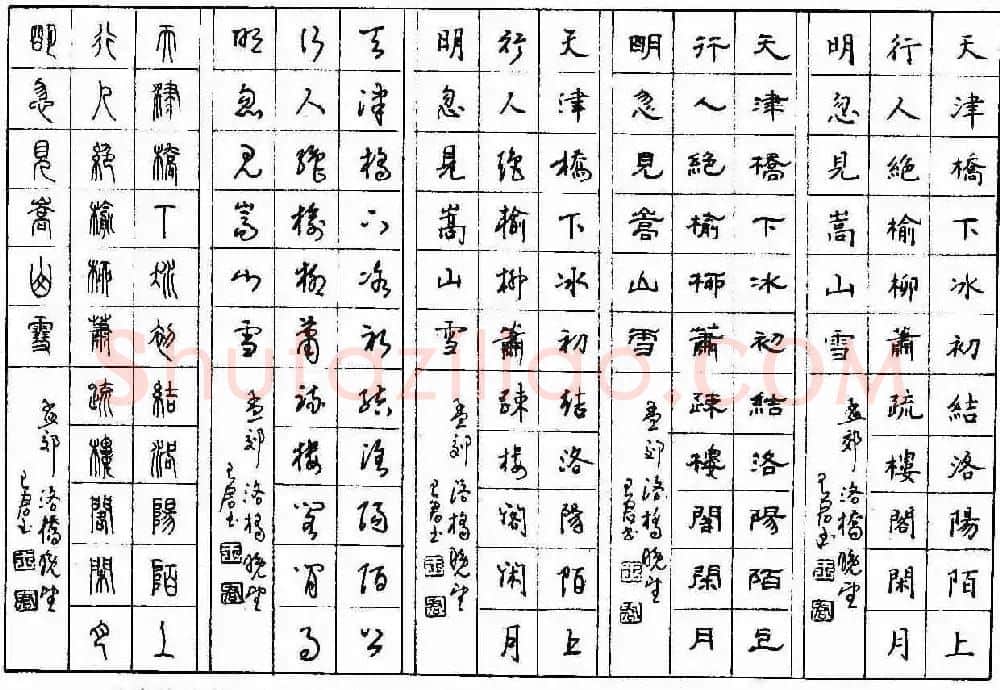 天津橋下冰初結洛陽陌上
行人絕榆柳蕭疏樓閣閑月
明忽見嵩山雪
孟郊 洛橋晚望
天津橋下冰初結洛陽陌上
行人絕榆柳蕭疎樓閣閑月
明忽見嵩山雪
孟郊 洛橋晚望
天津橋下冰初結洛陽陌上
行人絕榆柳蕭疎樓閣閑月
明忽見嵩山雪
孟郊 洛橋晚望
天津橋下冰初結洛陽陌上
行人絕榆柳蕭疏樓閣閑月
明忽見嵩山雪
孟郊 洛橋晚望
天津橋下冰初結洛陽陌上
行人絕榆柳蕭疏樓閣閑月
明忽見嵩山雪
孟郊 洛橋晚望
Shufaziliao.COM